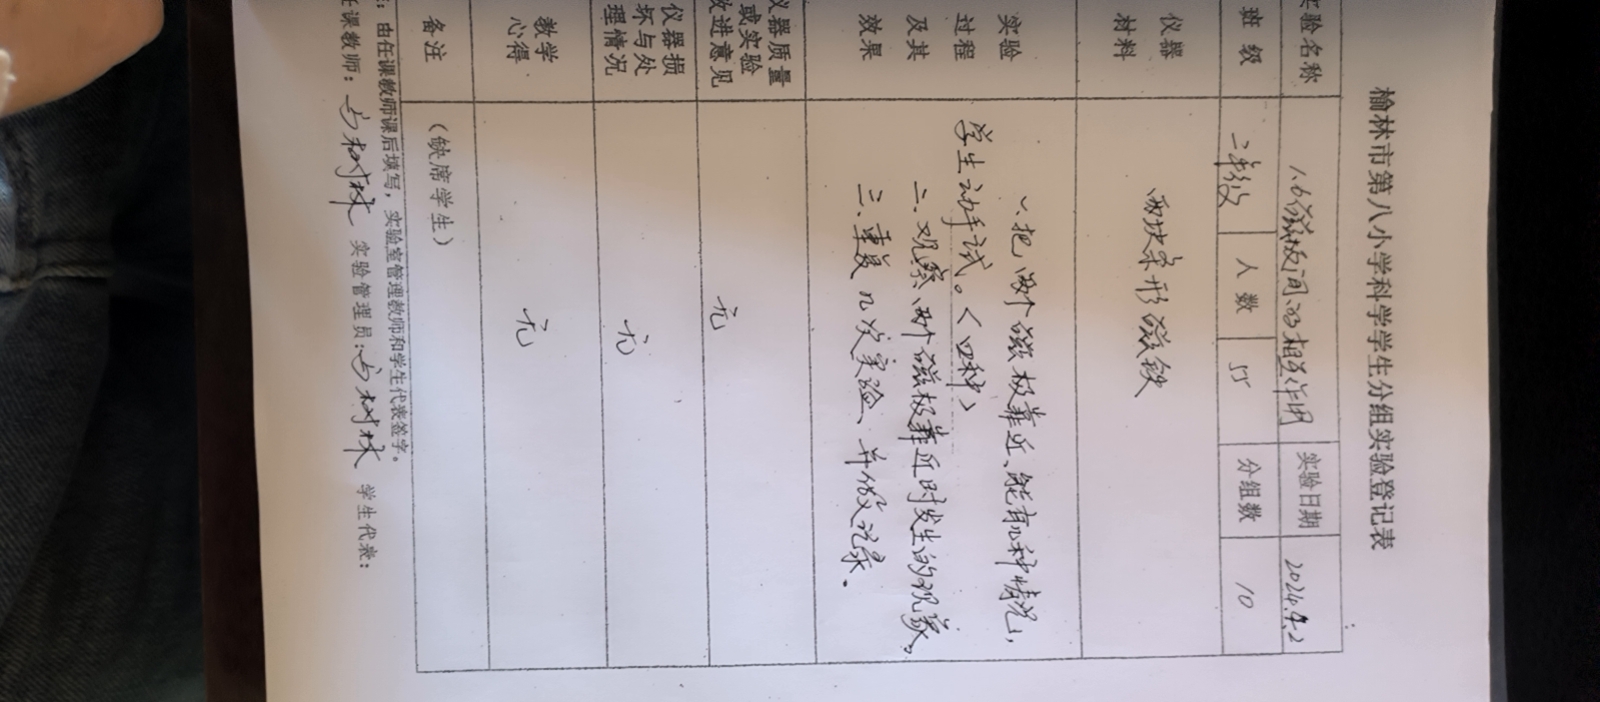 榆林市第八小学科学学生分组实验登记表
实验名称 1.6磁极间的相互作用 实验日期 2024.9.2
班 级 二年级 人 数 55 分组数 10
仪器 两块条形磁铁
材料
实验 一、把两个磁极靠近、能有几种情况,
过程 学生动手试。(四种)
及其 二、观察、两个磁极靠近时发生的现象。
效果 三、重复几次实验、并做记录.
仪器质量
或实验 无
改进意见
仪器损
坏与处 无
理情况
教学 无
心得
备注 (缺席学生)
:由任课教师课后填写,实验室管理教师和学生代表签字。
任课教师: 树林 实验管理员: 树林 学生代表: